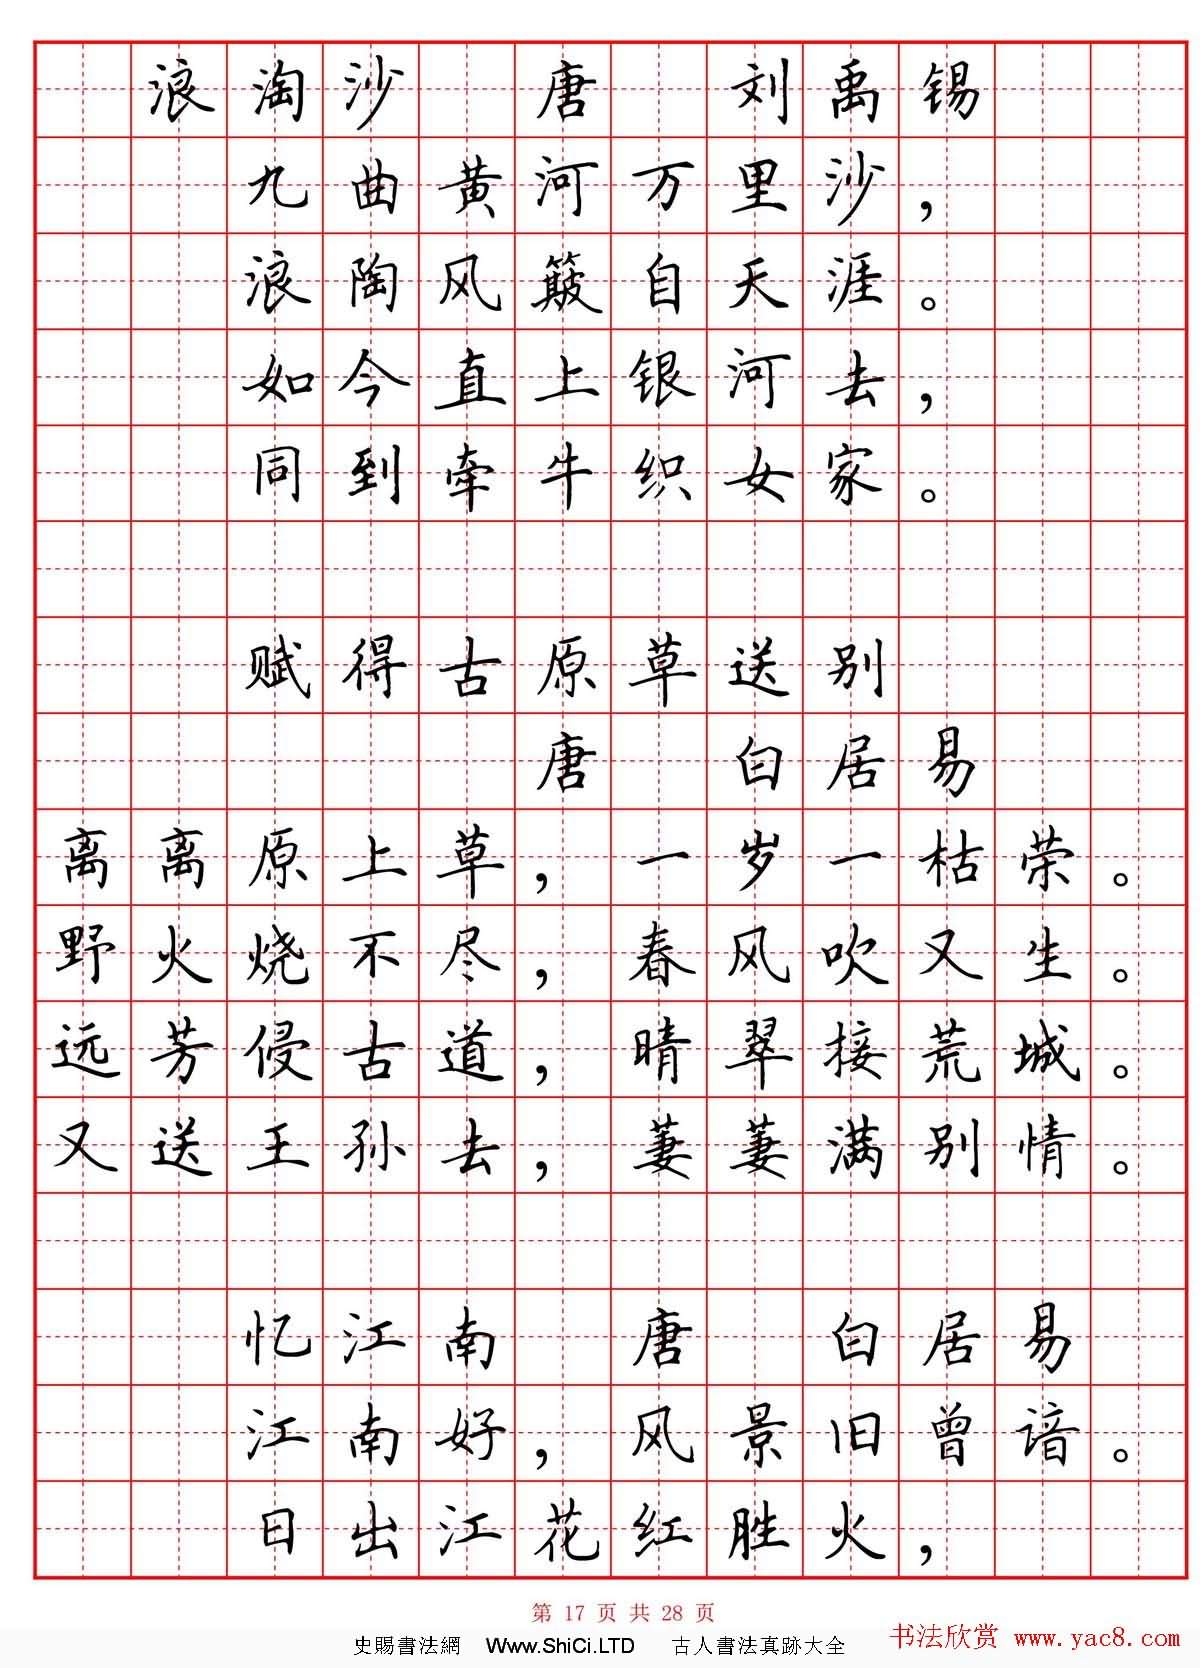 浪淘沙 唐 刘禹锡
九曲黄河万里沙，
浪陶风簸自天涯。
如今直上银河去，
同到牵牛织女家。
赋得古原草送别
唐 白居易
离离原上草，一岁一枯荣。
野火烧不尽，春风吹又生。
远芳侵古道，晴翠接荒城。
又送王孙去，萋萋满别情。
忆江南 唐 白居易
江南好，风景旧曾谙。
日出江花红胜火，
第 17 页 共 28 页
史賜書法網 Www.ShiCi.LTD 古人書法真跡大全
书法欣赏 www.yac8.com